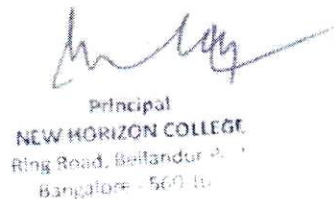 Principal
NEW HORIZON COLLEGE
Ring Road, Bellandur
Bangalore - 560